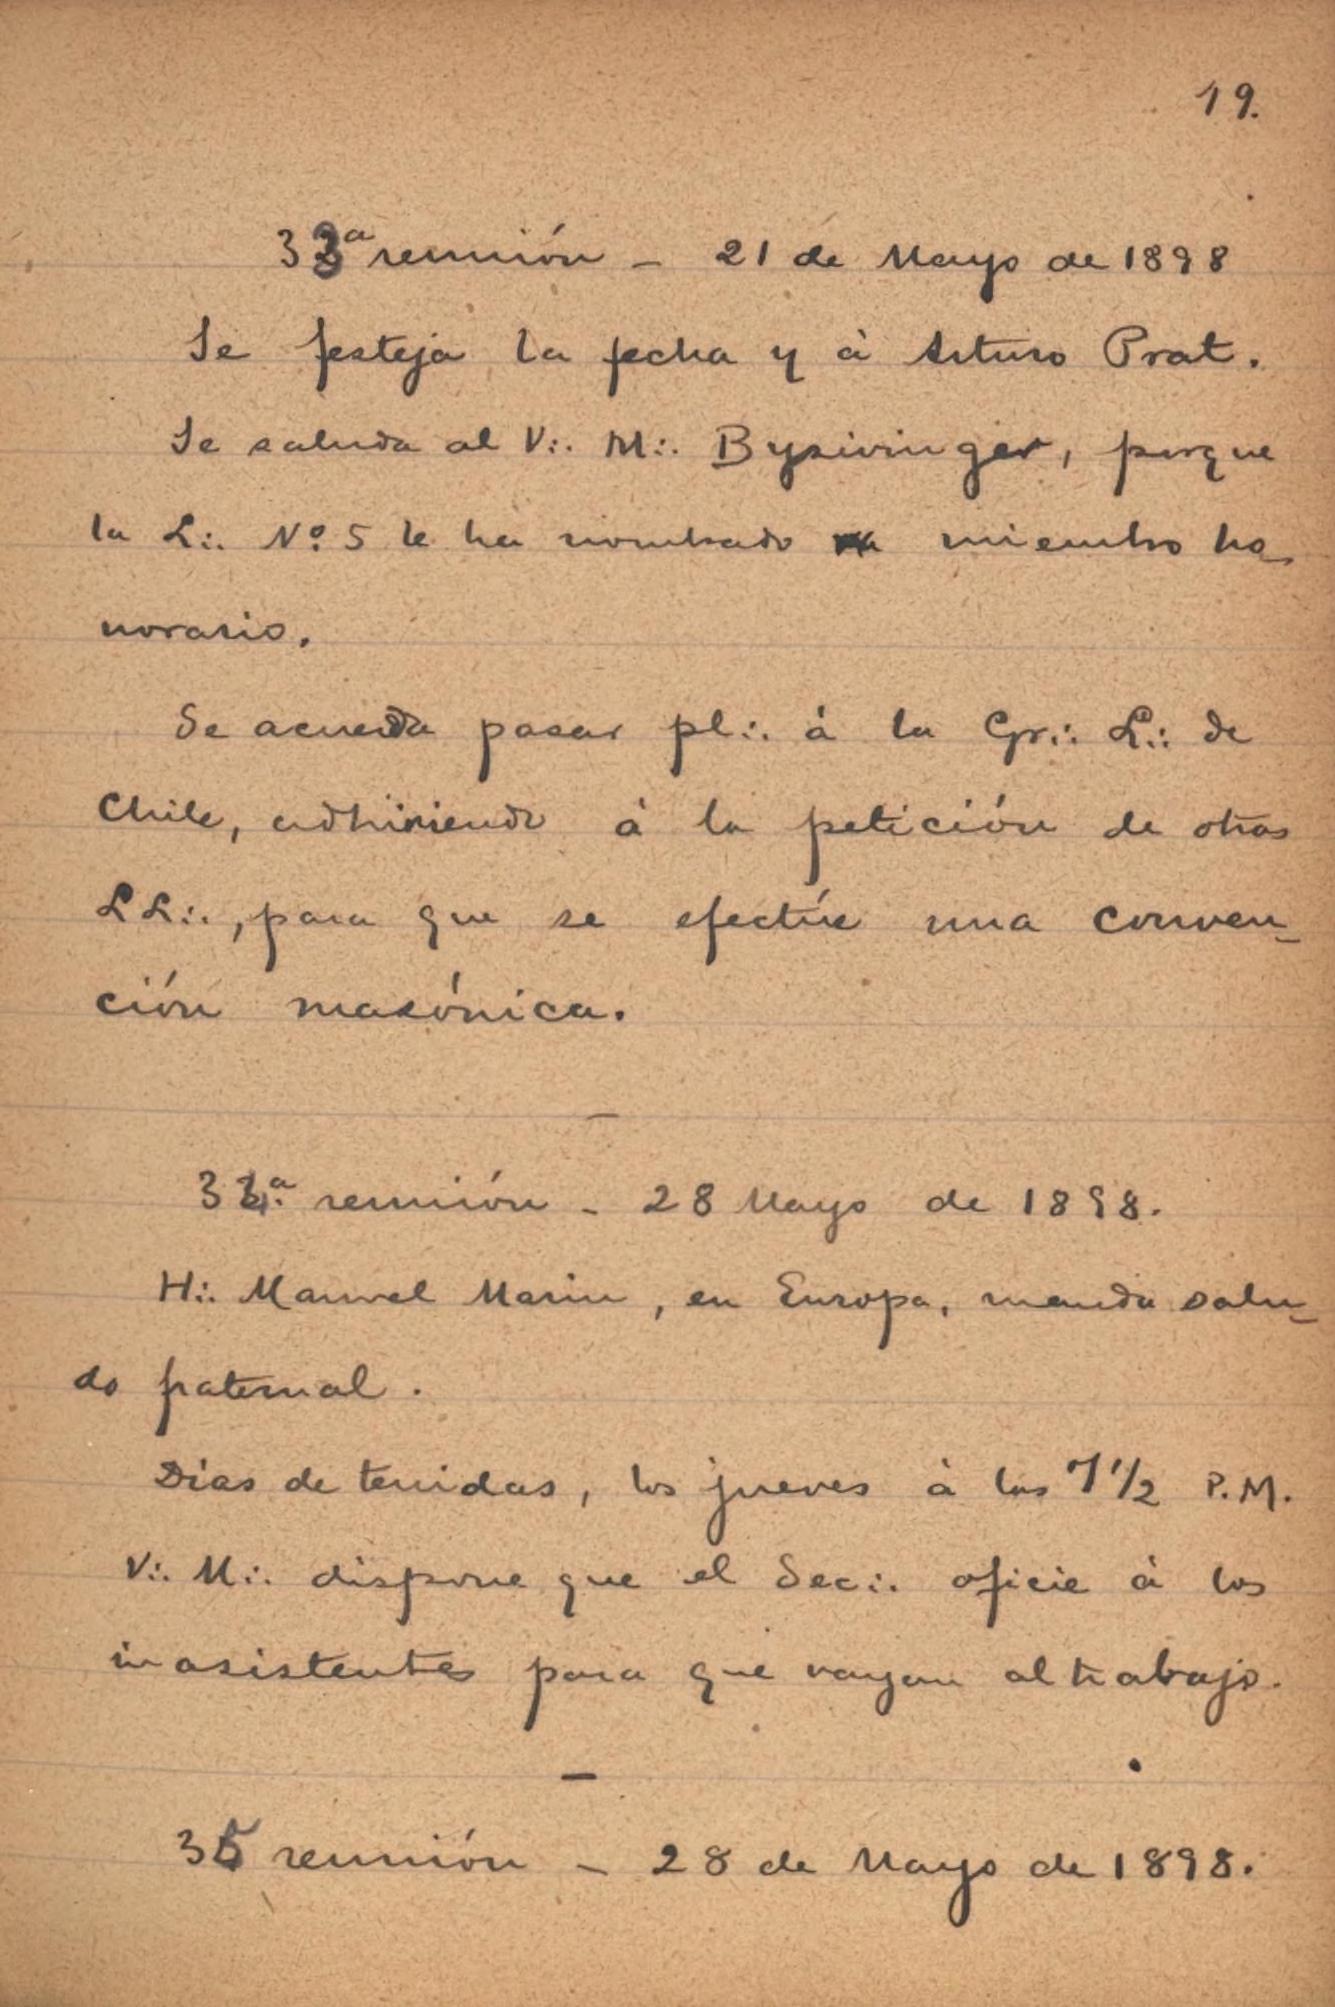 19.
33ª reunión - 21 de Mayo de 1898
Se festeja la fecha y à Arturo Prat.
Se saluda al V∴ M∴ Bysivinger, porque
la L∴ Nº 5 le ha nombrado miembro ho-
norario.
Se acuerda pasar pl∴ à la Gr∴ L∴ de
Chile, adhiriendo à la petición de otras
LL∴, para que se efectúe una conven-
ción masónica.
34ª reunión - 28 Mayo de 1898.
H∴ Manuel Marin, en Europa, manda salu-
do fraternal.
Dias de tenidas, los jueves à las 7 1/2 P.M.
V∴ M∴ dispone que el Sec∴ oficie à los
inasistentes para que vayan al trabajo.
35 reunión - 28 de Mayo de 1898.